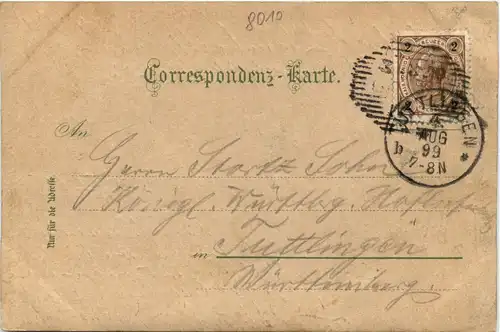 8010
2 2
Correspondenz-Karte.
TUTTLINGEN
4
AUG
99
b 7-8N *
An
Herrn Storz Sohn
Königl. Württbg. Hoflief
in Tuttlingen
Württemberg.
Nur für die Adresse.